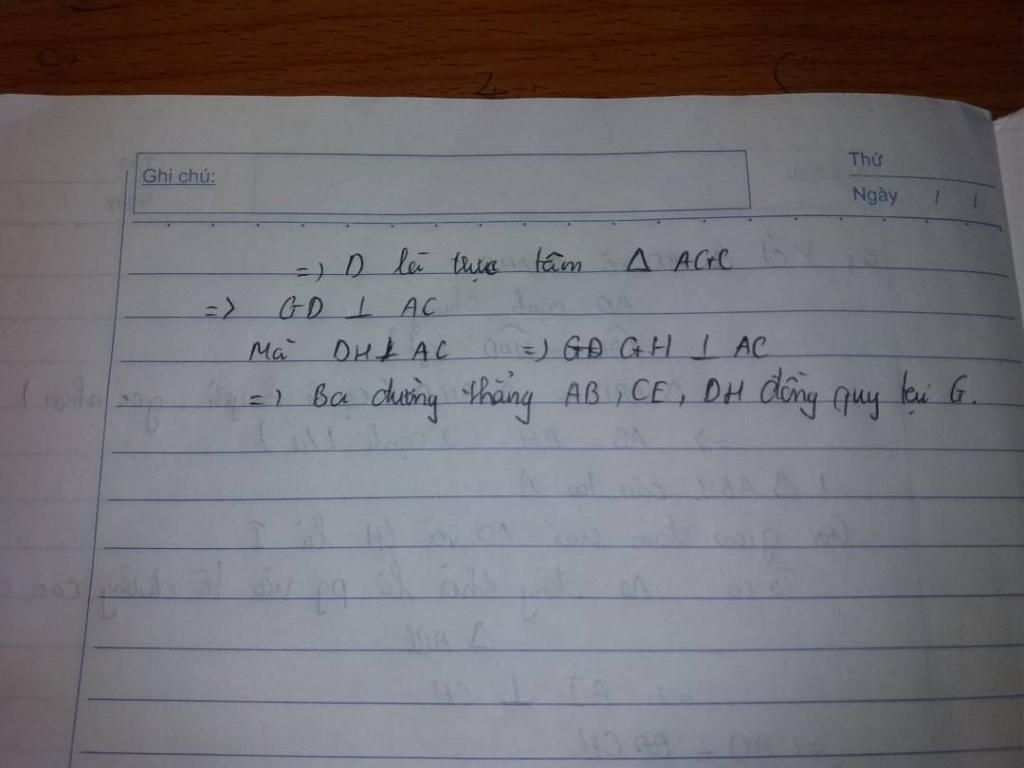 Ghi chú:
Thứ
Ngày / /
=) D là trực tâm Δ AGC
=> GD ⊥ AC
Mà DH ⊥ AC =) GH ⊥ AC
=) Ba đường thẳng AB, CE, DH đồng quy tại G.